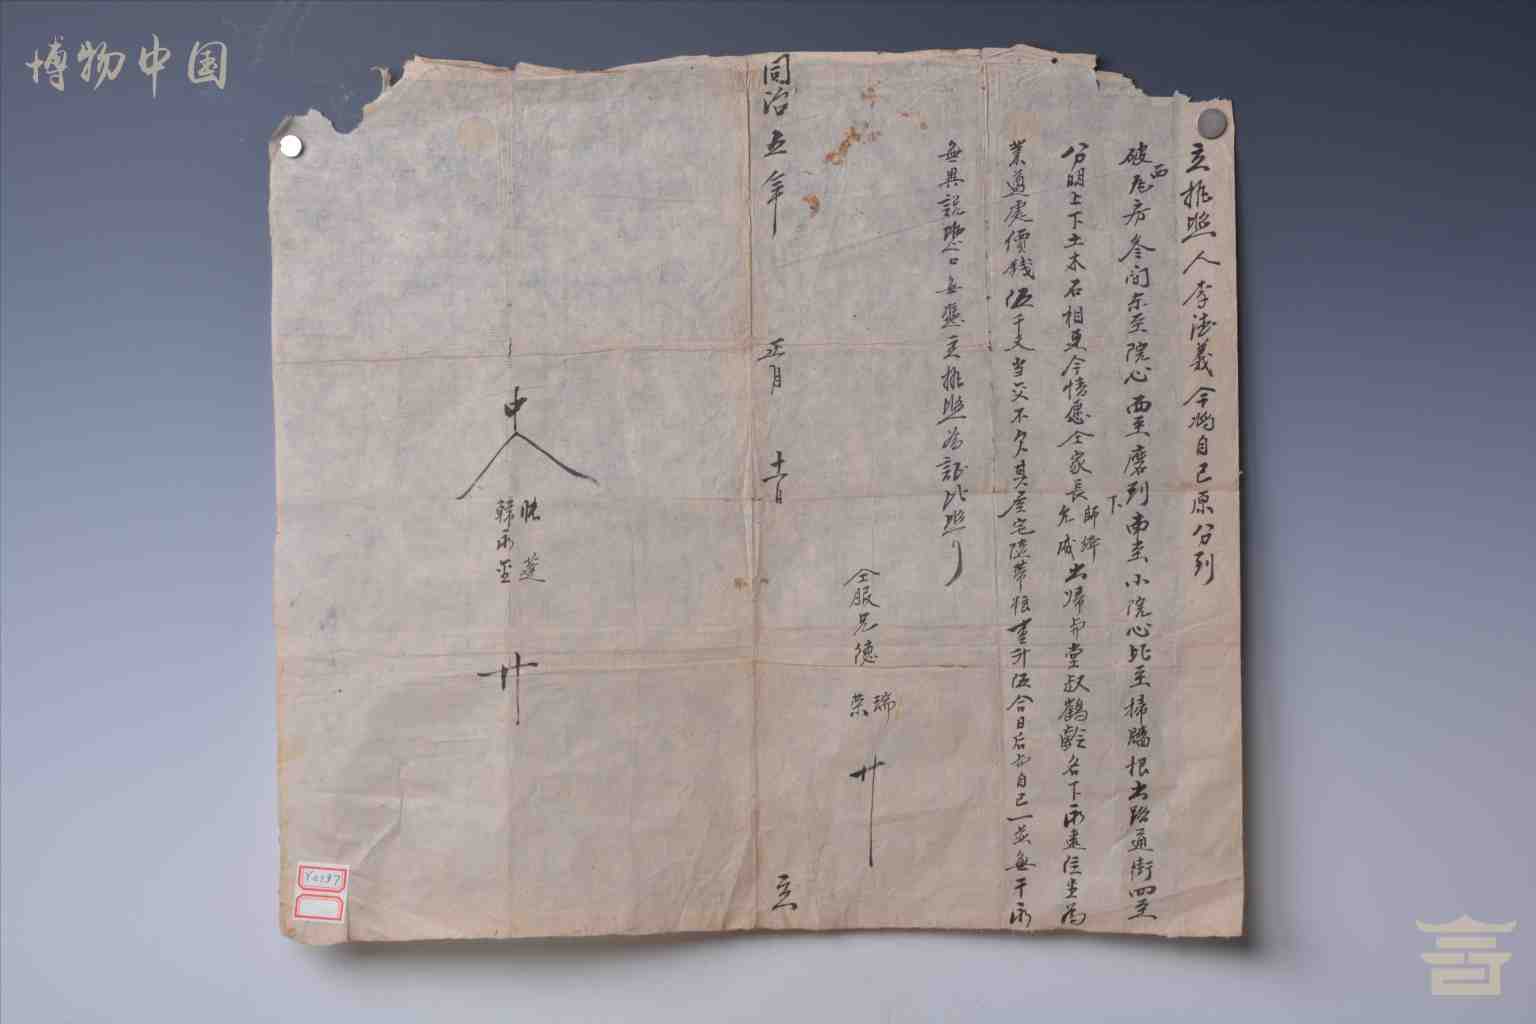 博物中国
立推照人李德義今將自己原分到
破西瓦房叁间东至院心西至磨到下南至小院心北至掃牆根出路通街四至
分明上下土木石相連今情愿仝家長師緯允成出歸与堂叔鶴齡名下永遠住坐為
業遵處價錢伍千文当交不欠其房宅隨帶粮壹升伍合日后与自己一並無干永
無異說恐口無憑立推照為証此照
仝服兄德瑞榮 十
同治五年 正月 十一日 立
中人 蓮 韓永 十
Y0197